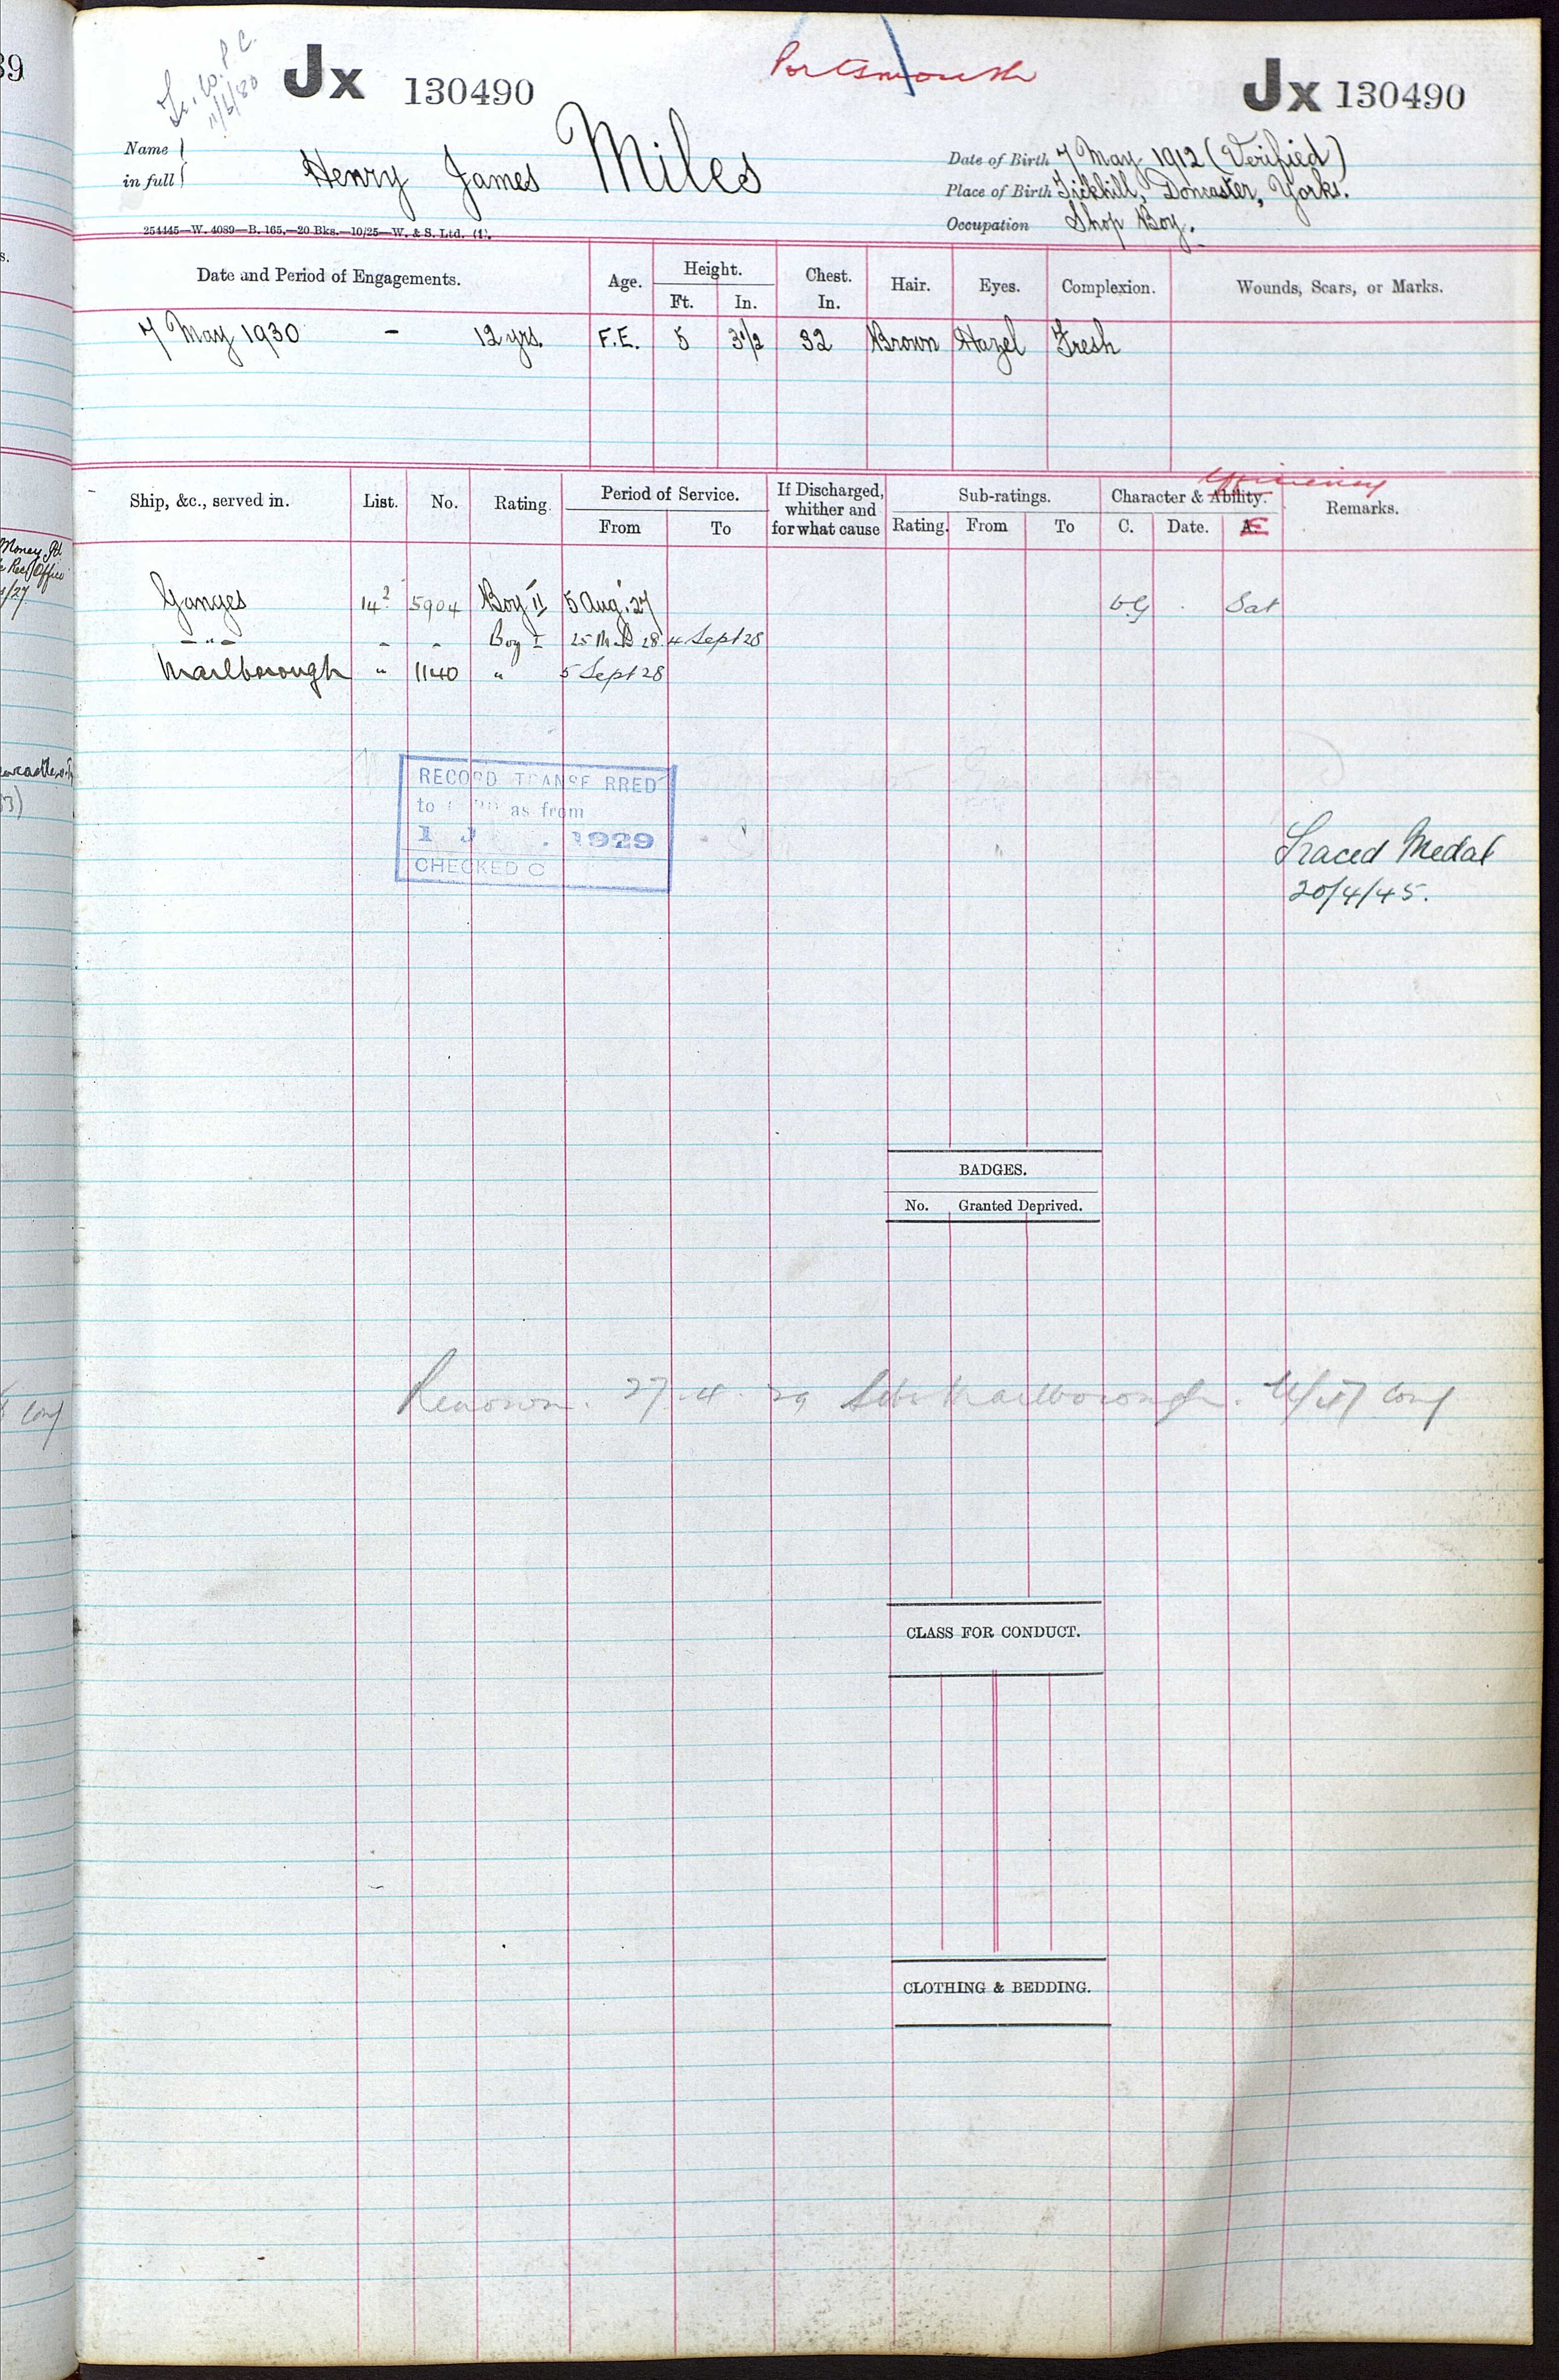 39
Jx 130490
Portsmouth
Jx 130490
11/6/30
Name in full
Henry James Miles
Date of Birth 7 May 1912 (Verified)
Place of Birth Tickhill, Doncaster, Yorks.
Occupation Shop Boy.
254445—W. 4089—B. 165.—20 Bks.—10/25—W. & S. Ltd. (4).
Date and Period of Engagements. Age. Height. Ft. In. Chest. In. Hair. Eyes. Complexion. Wounds, Scars, or Marks.
7 May 1930 - 12 yrs. F.E. 5 3½ 32 Brown Hazel Fresh
Efficiency
Ship, &c., served in. List. No. Rating. Period of Service. From To If Discharged, whither and for what cause Sub-ratings. Rating. From To Character & Ability. C. Date. E Remarks.
Money Pd
Rec Office
/27
Ganges 14² 5904 Boy II 5 Aug. 27 VG Sat
-"- - - Boy I 25 Mch 28 4 Sept 28
Marlborough " 1140 " 5 Sept 28
RECORD TRANSFERRED
to as from
1 J . 1929
CHECKED C
Traced Medal
20/4/45.
BADGES.
No. Granted Deprived.
Renown. 27.4.29 Marlborough. conf
conf
CLASS FOR CONDUCT.
CLOTHING & BEDDING.